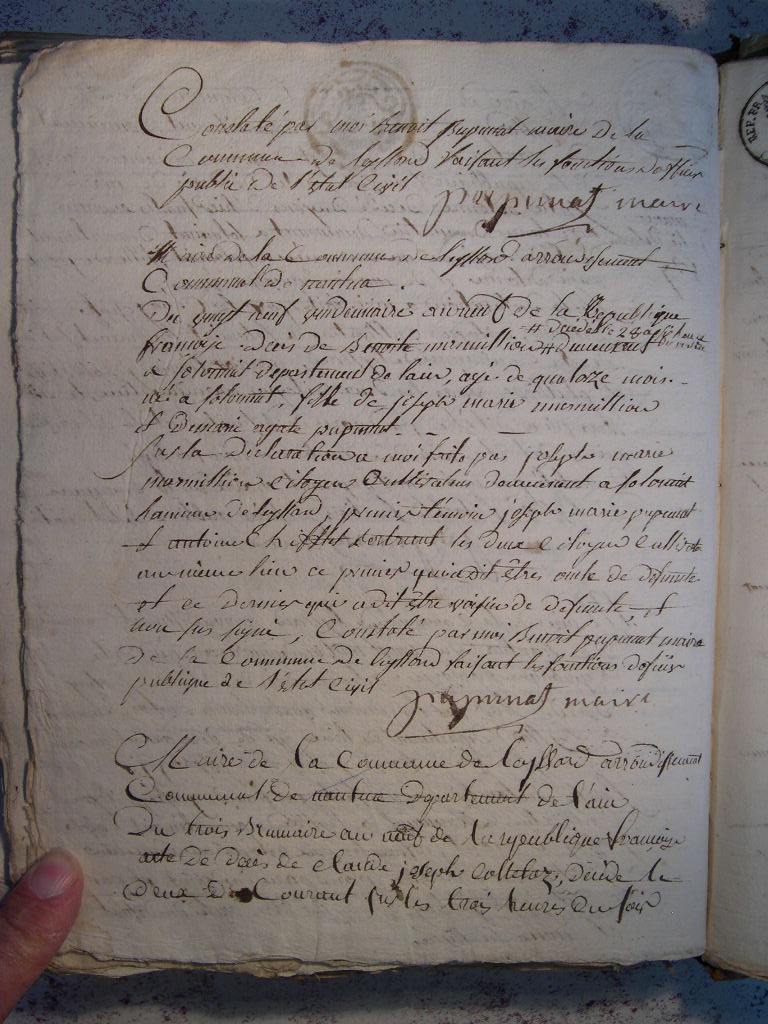 Constaté par moi Benoit pupunat maire de la
Commune de leyssard faisant les fonctions dofficier
public de l'état Civil
pupunat maire
Maire de la Commune de leyssard arrondissement
Communal de nantua.
Du vingt neuf vendemaire an neuf de la Republique
françoise deces de Benoite mermillion # demeurant
# decedé le 28 a
a solomiat departement de lain, agé de quatorze mois
né a solomiat, fille de joseph marie mermillion
et de marie agate pupunat.
sur la declaration a moi faite par joseph marie
mermillion citoyen Cultivateur demeurant a solomiat
commune de leyssard, premier témoin joseph marie pupunat
et antoine les deux citoyen
au meme lieu ce premier qui a dit être oncle de defunte
et ce dernier qui a dit être voisin de defunte et
non sus signé, Constaté par moi Benoit pupunat maire
de la Commune de leyssard faisant les fonctions doficier
publique de l'état Civil
pupunat maire
Maire de la Commune de leyssard arrondissement
Communal de nantua Departement de l'ain
Du trois Brumaire an neuf de la republique françoise
acte de deces de Claude joseph Colletaz, décédé le
deux du Courant sur les trois heures du soir